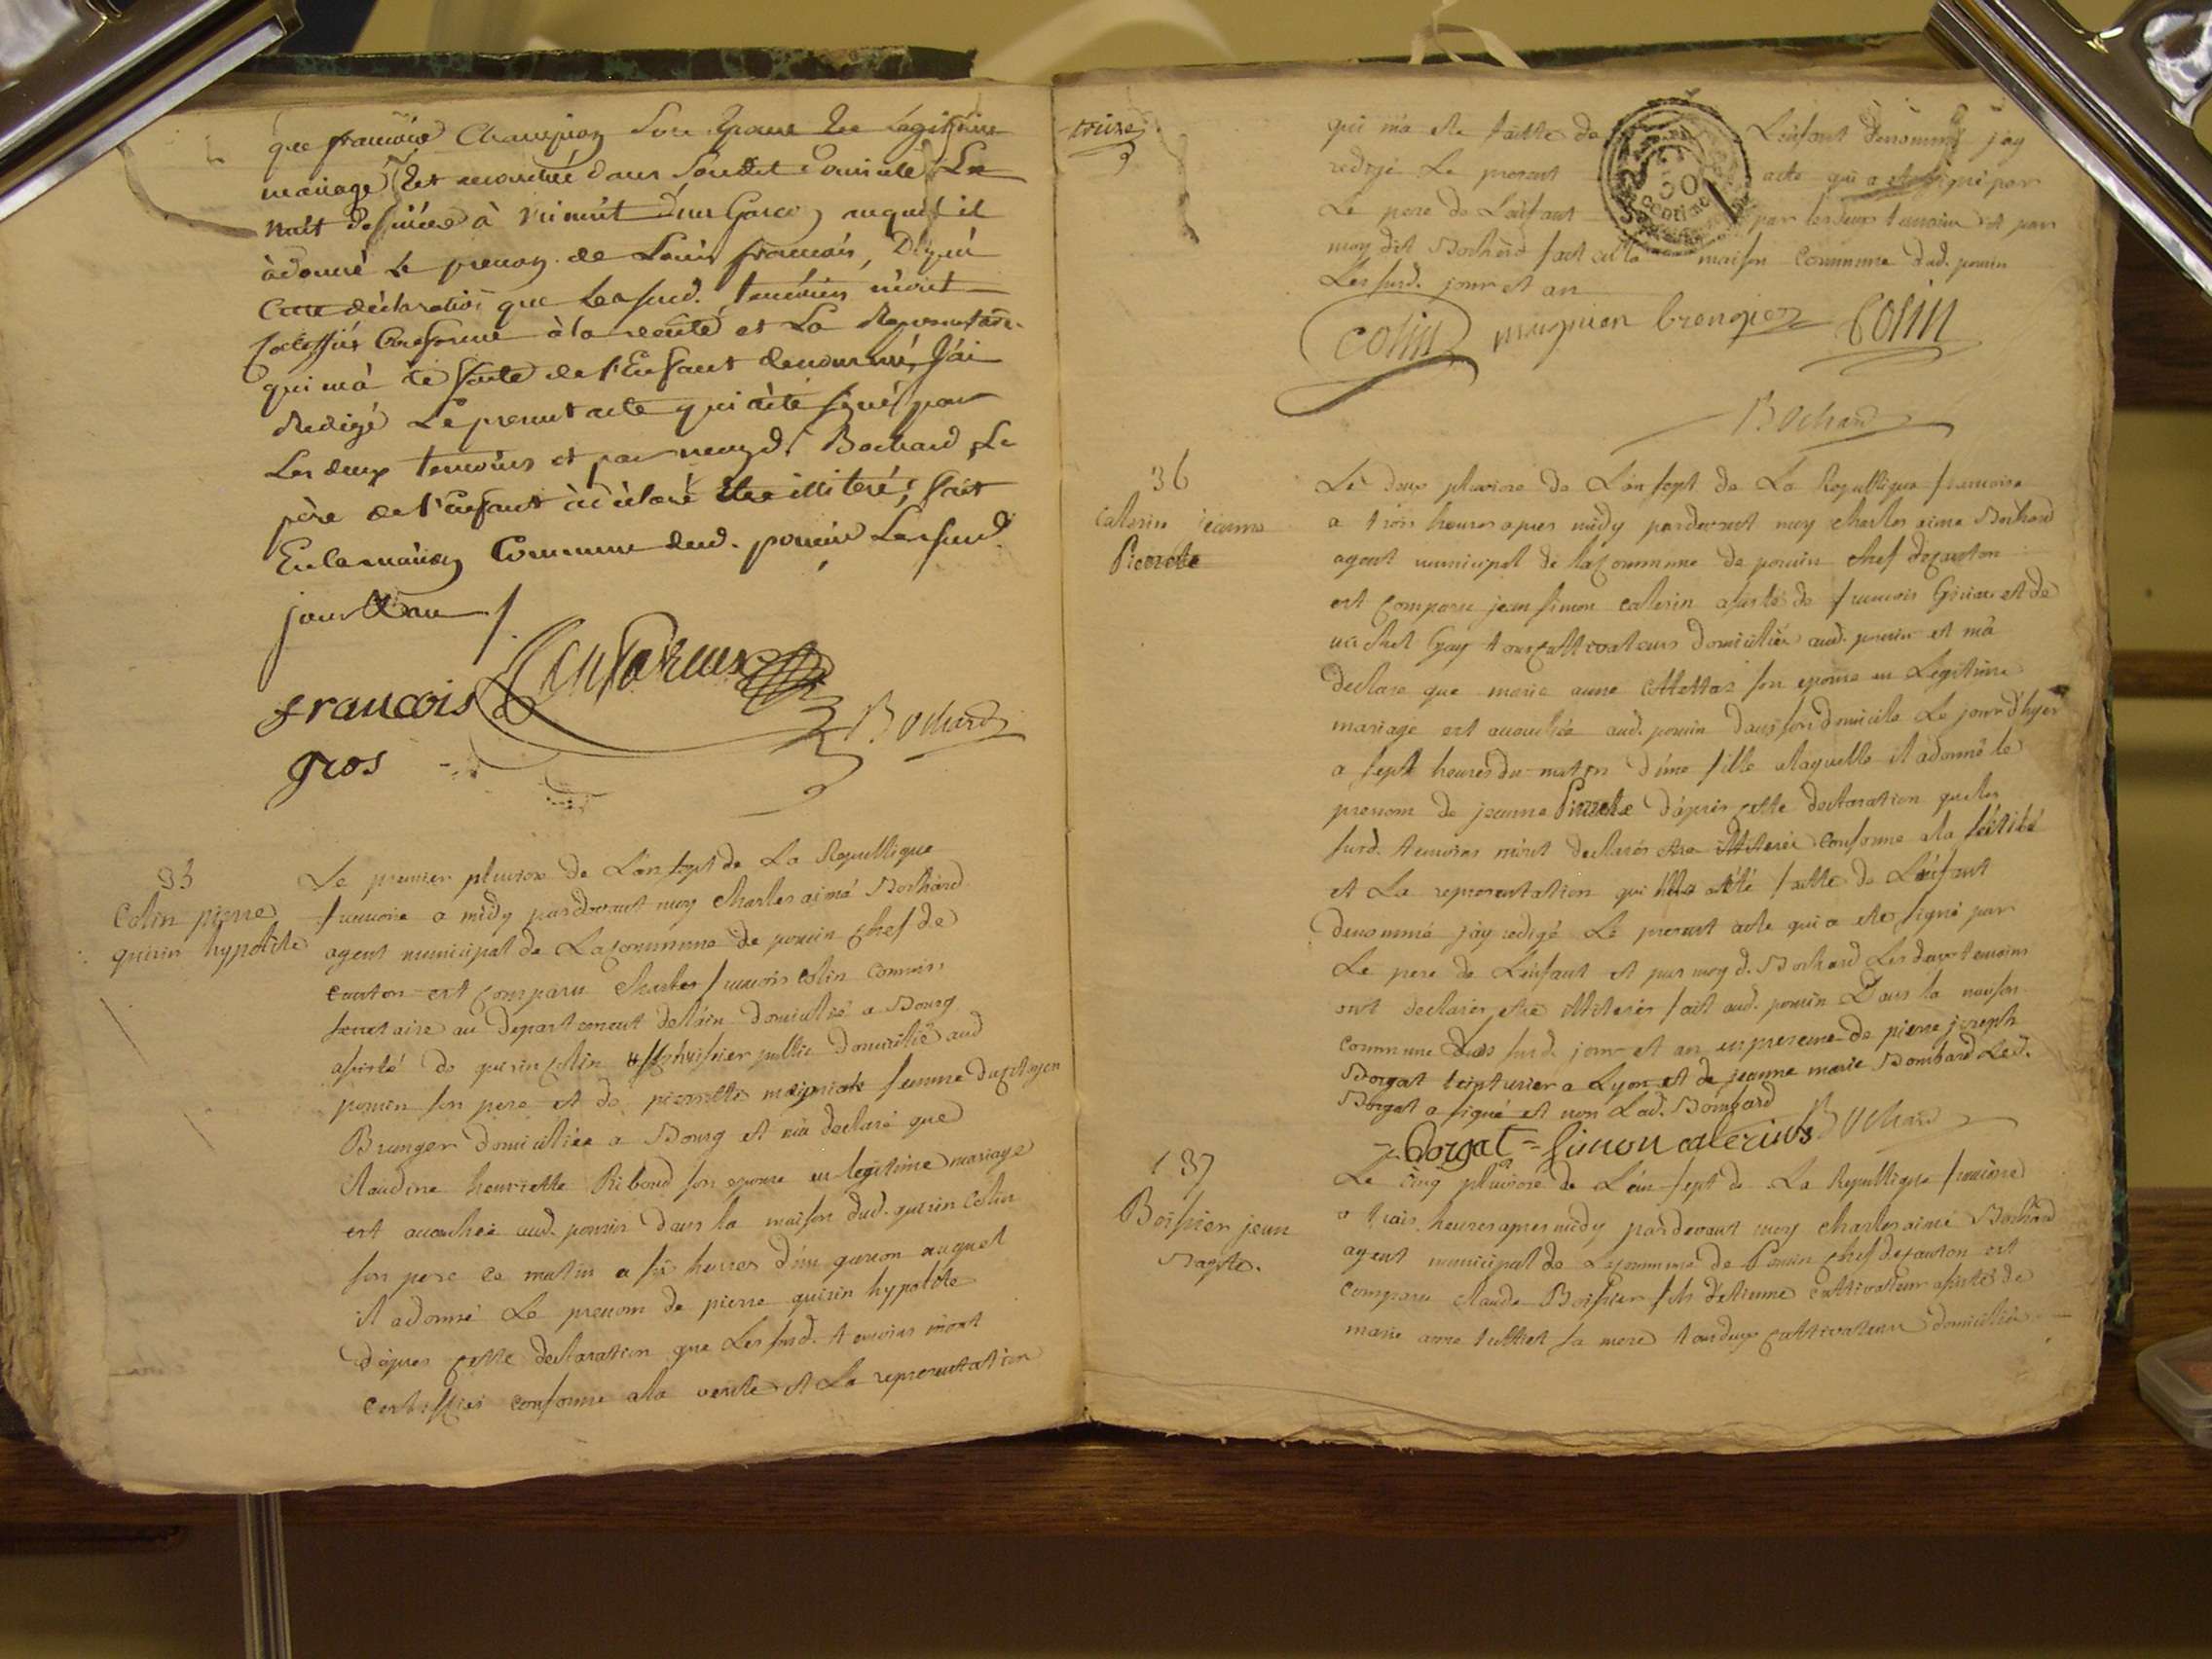 que françoise Champion son Epouse en Legitime
mariage Est accouchée dans Son dit Domicile La
nuit derniere à minuit d'un Garçon auquel il
à donné Le prenom de Louis françois, D'après
Cette déclaration que les susd. temoins m'ont
Certiffiés Conforme à la verité et La Representaōn
qui m'à été faite de l'Enfant denommé, J'ai
Redigé Le present acte qui à été signé par
Les deux temoins et par moyd. Bochard, Le
père de l'enfant à déclaré être illiteré, fait
En la maison Commune dud. poncin Les susd.
jour et an /.
francois
gros
Bochard
35
Colin pierre
quirin hypolite
Le premier pluviose de L'an sept de La Republique
francoise a midy pardevant moy charles aimé Bochard
agent municipal de La commune de poncin chef de
canton est comparu charles francois colin commis
secretaire au departement de l'ain domicilié a Bourg
assisté de quirin colin huissier public domicilié aud
poncin son pere et de pierrette femme du citoyen
domiciliée a Bourg et m'a declaré que
claudine henriette Riboud son epouse en legitime mariage
est accouchée aud. poncin dans la maison dud. quirin Colin
son pere ce matin a six heures d'un garcon auquel
il a donné Le prenom de pierre quirin hypolite
d'apres cette declaration que Les susd. temoins m'ont
certiffiés conforme a la verite et La representation
treize
qui m'a ete faitte de L'enfant denommé j'ay
redigé Le present acte qui a ete signé par
Le pere de L'enfant par les deux temoins et par
moy dit Bochard fait en la maison Commune dud. poncin
Les susd. jour et an
50
centimes
colin brengier Colin
Bochard
36
Caterin jeanne
Pierrette
Le deux pluviose de L'an sept de La Republique francoise
a trois heures apres midy pardevant moy charles aimé Bochard
agent municipal de la Commune de poncin chef de canton
est comparu jean simon caterin assisté de francois et de
michel Gay tous cultivateurs domiciliés aud. poncin et m'a
declaré que marie anne son epouse en Legitime
mariage est accouchée aud. poncin dans son domicile Le jour d'hyer
a sept heures du matin d'une fille a laquelle il a donné le
prenom de jeanne Pierrette d'apres cette declaration que les
susd. temoins m'ont declarés etre illiterés conforme a la verité
et La representation qui m'a été faitte de L'enfant
denommé j'ay redigé Le present acte qui a ete signé par
Le pere de L'enfant et par moy d. Bochard Les deux temoins
ont declarés etre illiterés fait aud. poncin Dans la maison
commune Les susd. jour et an en presence de pierre joseph
Borgat teinturier a Lyon et de jeanne marie Bombard Led.
Borgat a signé et non Lad. Bombard
Borgat = simon caterin Bochard
37
Boissier jean
Bapte.
Le cinq pluviose de L'an sept de La Republique francoise
a trois heures apres midy pardevant moy charles aimé Bochard
agent municipal de La commune de Poncin chef de canton est
comparu claude Boissier fils d'etienne cultivateur assisté de
marie anne sa mere tous deux cultivateurs domiciliés